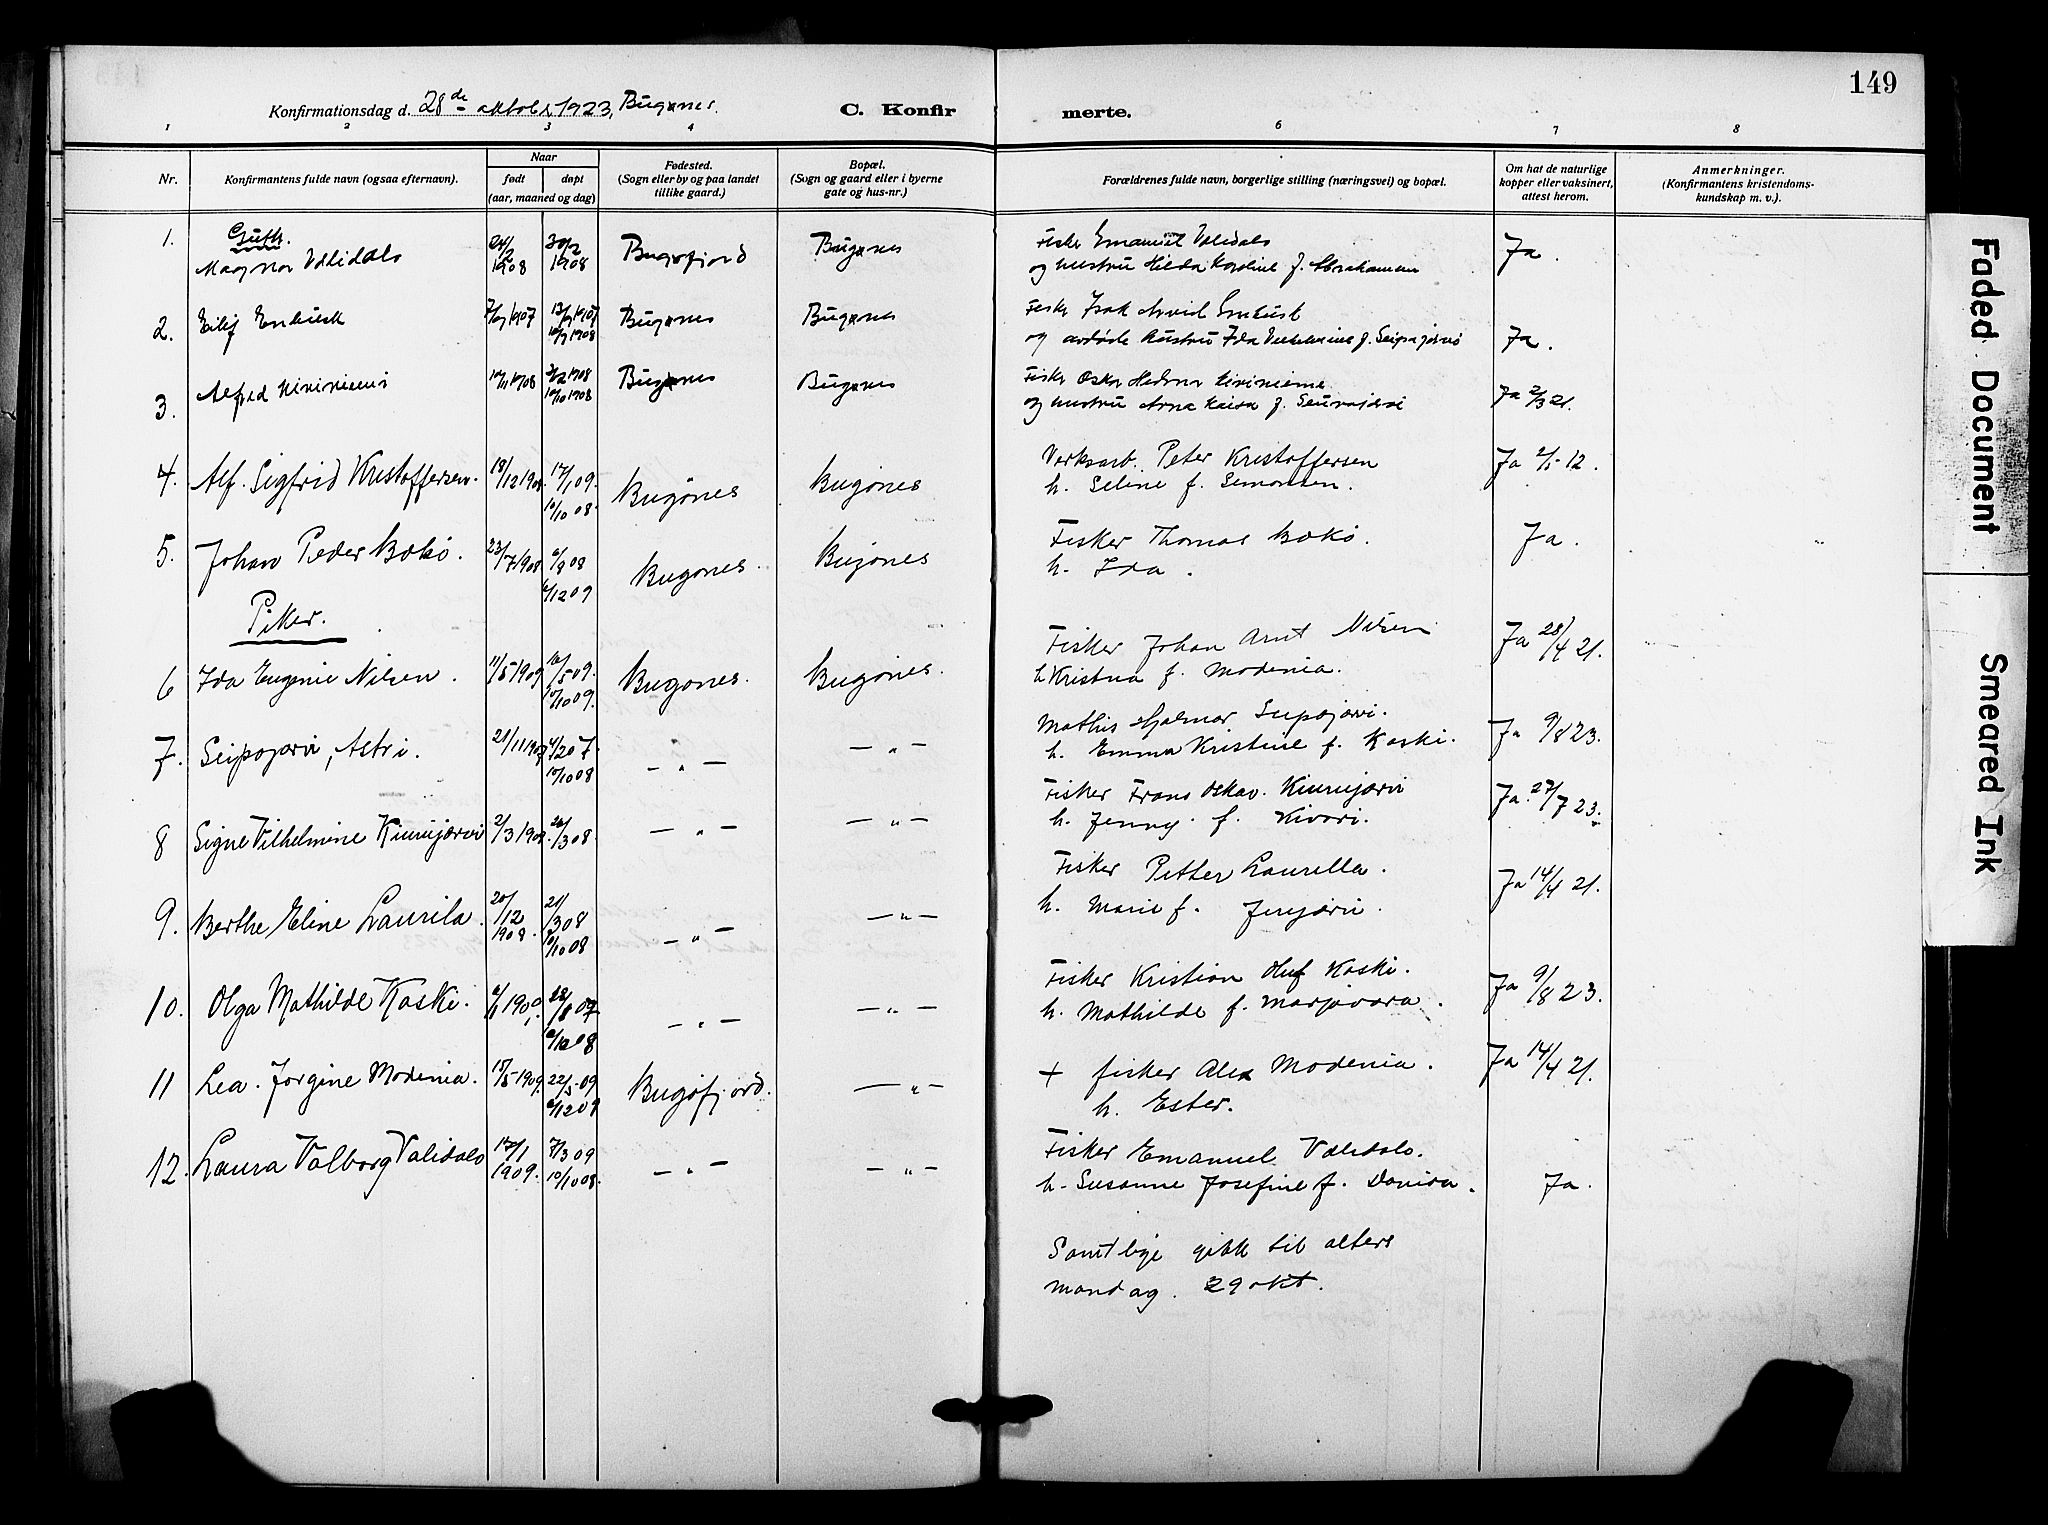 149
Konfirmationsdag d. 28de oktober 1923, Bugønes.
C. Konfirmerte.
1 2 3 4 6 7 8
Nr.
Konfirmantens fulde navn (ogsaa efternavn).
Naar
født døpt
(aar, maaned og dag)
Fødested.
(Sogn eller by og paa landet
tillike gaard.)
Bopæl.
(Sogn og gaard eller i byerne
gate og hus-nr.)
Forældrenes fulde navn, borgerlige stilling (næringsvei) og bopæl.
Om hat de naturlige
kopper eller vaksinert,
attest herom.
Anmerkninger.
(Konfirmantens kristendoms-
kundskap m. v.).
Gutter.
1. Magnor 24/2 1908 1908 Bugøfjord Bugønes Fisker Emanuel
og hustru Hilda Karoline f. Abrahamsen Ja.
2. 1907 1907 1908 Bugønes Bugønes Fisker Isak Arvid
og avdøde hustru Ida f. Seipajærvi Ja.
3. Alfred Kiviniemi 1908 1908 10/10 1908 Bugønes Bugønes Fisker Oskar
og hustru Kaisa f. Ja 2/3 21.
4. Alf. Sigfrid Kristoffersen. 18/12 17/1 09. 10/10 08. Bugønes Bugønes Verksarb. Peter Kristoffersen
h. Seline f. Simonsen. Ja 12.
5. Johan Peder Bøkø. 23/7 1908 6/8 08 6/12 09 Bugønes. Bugønes Fisker Thomas Bøkø.
h. Ida. Ja.
Piker.
6 Ida Eugenie Nilsen. 11/5 1909 16/5 09. 10/10 09. Bugønes. Bugønes. Fisker Johan Arnt Nilsen
h Kristina f. Modenia. Ja 28/4 21.
7. Seipajærvi, Astri. 21/11 10/10 08 — „ — — „ — Mathis Hjalmar Seipajærvi.
h. Emma Kristine f. Koski. Ja 9/8 23.
8 Signe Vilhelmine Kiurujærvi 2/3 /3 08. — „ — — „ — Fisker Frans Oskar. Kiurujærvi
h. Jenny. f. Kivari. Ja. 27/7 23.
9. Berthe Eline Laurila. 20/12 1908. 21/3 08 10/10 08 — „ — — „ — Fisker Petter Laurilla.
h. Marie f. Ja 14/4 21.
10. Olga Mathilde Koski. 28/8 07 — „ — — „ — Fisker Kristian Koski.
h. Mathilde f. Marjavara. Ja 9/8 23.
11 Lea. Jorgine Modenia. 15/5 1909. 22/5 09 6/12 09 Bugøfjord. — „ — + fisker Alex Modenia.
h. Ester. Ja 14/4 21.
12. Laura Valborg 17/1 1909. 7/3 09 10/10 08. — „ — — „ — Fisker Emanuel
h. Susanne Josefine f. Ja.
Samtlige gikk til alters
mandag. 29 okt.
Faded Document
Smeared Ink